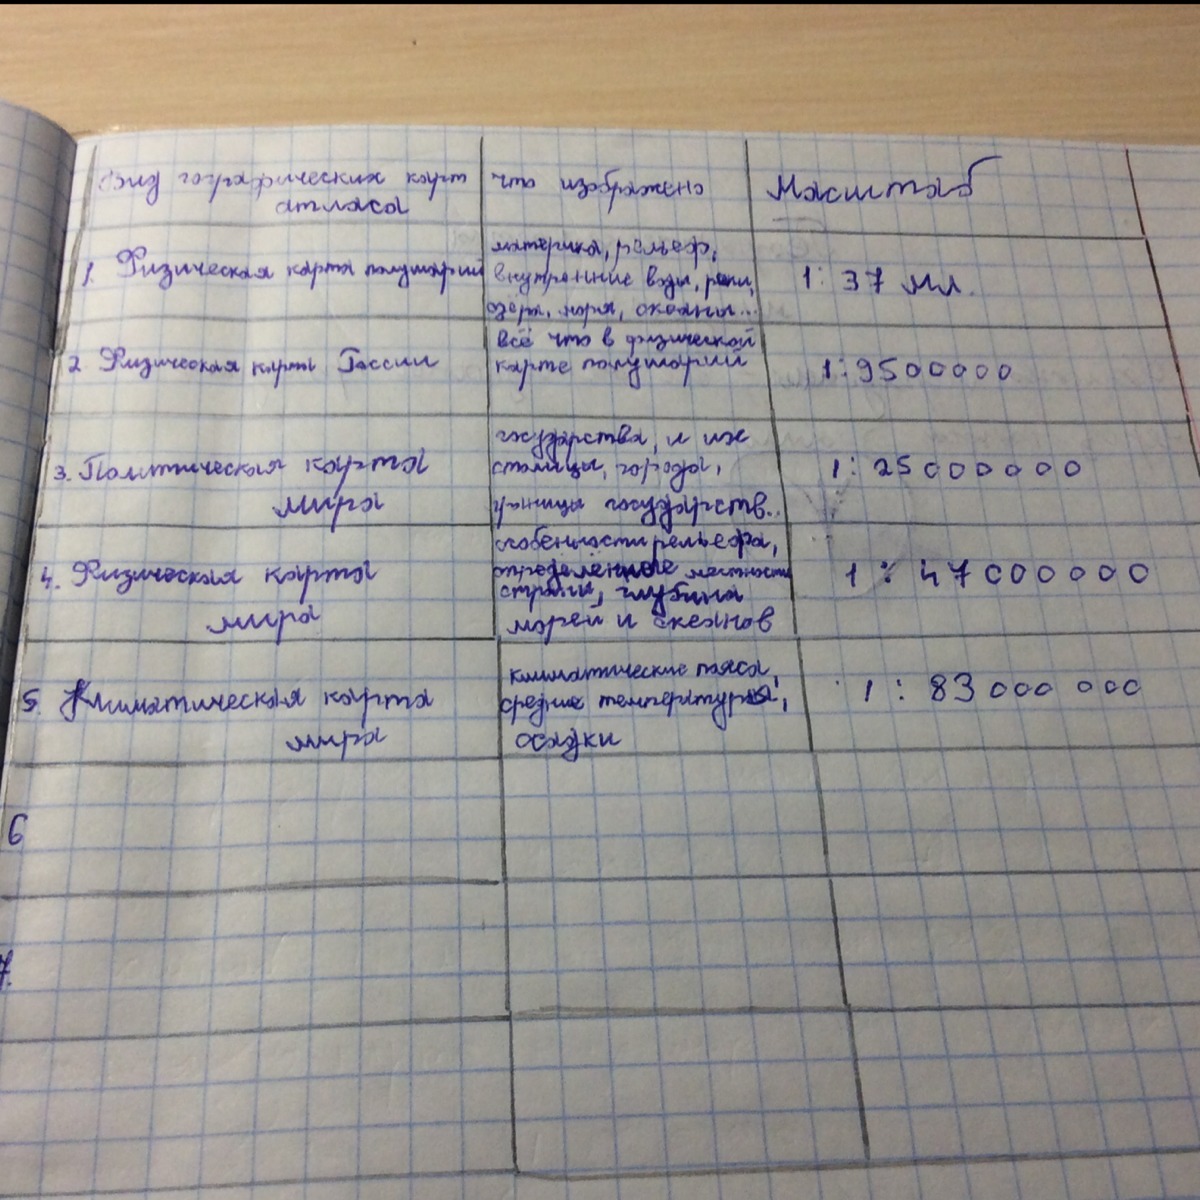 Вид географических карт
атласа
что изображено
Масштаб
1. Физическая карта полушарий
материка, рельеф,
внутренние воды, реки,
озёра, моря, океаны...
1: 37 мл.
2. Физическая карта России
всё что в физической
карте полушарий
1:9500000
3. Политическая карта
мира
государства, и их
столицы, города,
границы государств..
1: 25000000
4. Физическая карта
мира
особенности рельефа,
определённые местности
страны, глубина
морей и океанов
1 : 47000000
5. Климатическая карта
мира
климатические пояса,
средние температуры,
осадки
1 : 83 000 000
6
7.